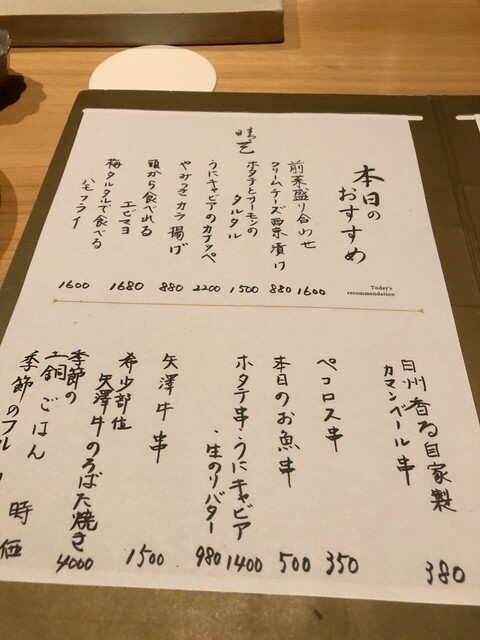 本日の
おすすめ
Today's
recommendation
前菜盛り合わせ
1600
クリームチーズ西京漬け
880
ホタテとサーモンの
タルタル
1500
うにキャビアのカナッペ
2200
やみつきカラ揚げ
880
頭から食べれる
エビマヨ
1680
梅タルタルで食べる
ハモフライ
1600
白州香る自家製
カマンベール串
380
ペコロス串
350
本日のお魚串
500
ホタテ串・うにキャビア
1400
・生のりバター
980
矢澤牛串
1500
希少部位
矢澤牛のろばた焼き
4000
季節の
土鍋ごはん
季節のフル
時価